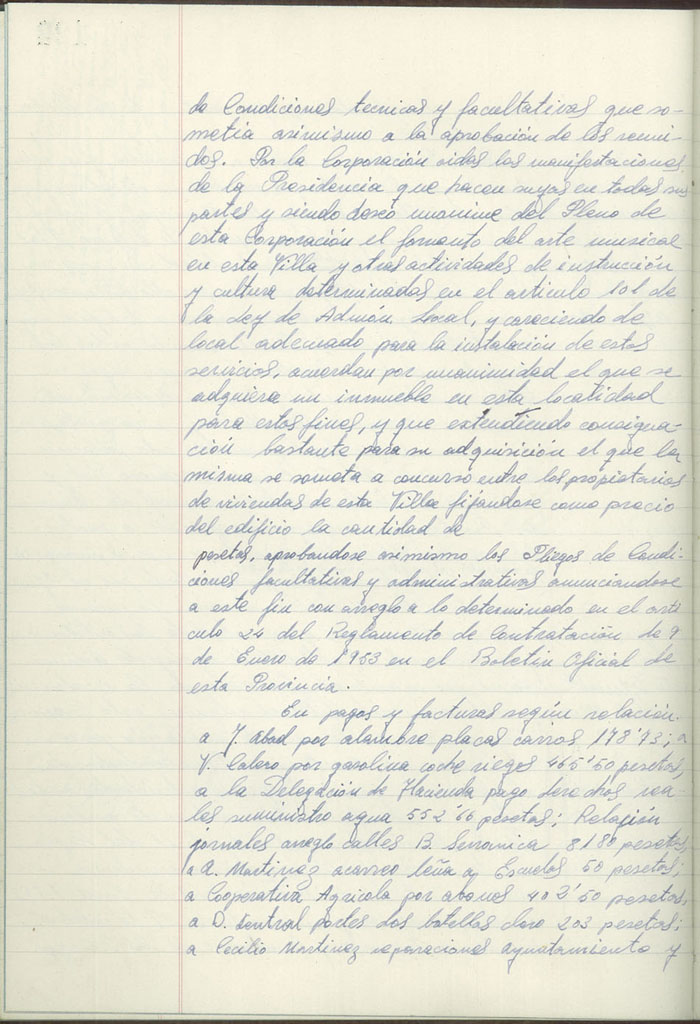 de Condiciones tecnicas y facultativas que so-
metia asimismo a la aprobación de los reuni-
dos. Por la Corporación oidas las manifestaciones
de la Presidencia que hacen suyas en todas sus
partes y siendo deseo unanime del Pleno de
esta Corporación el fomento del arte musical
en esta Villa y otras actividades de instrucción
y cultura determinadas en el articulo 101 de
la Ley de Admón Local, y careciendo de
local adecuado para la instalación de estos
servicios, acuerdan por unanimidad el que se
adquiera un inmueble en esta localidad
para estos fines, y que extendiendo consigna-
ción bastante para su adquisición el que la
misma se someta a concurso entre los propietarios
de viviendas de esta Villa fijandose como precio
del edificio la cantidad de
pesetas, aprobandose asimismo los Pliegos de Condi-
ciones facultativas y administrativas anunciandose
a este fin con arreglo a lo determinado en el arti
culo 24 del Reglamento de Contratación de 9
de Enero de 1953 en el Boletin Oficial de
esta Provincia.
En pagos y facturas según relación.
a J. Abad por alambre placas carros 178'75; a
V. Calero por gasolina coche riegos 465'50 pesetas,
a la Delegación de Hacienda pago derechos rea-
les suministro agua 552'66 pesetas; Relación
jornales arreglo calles B. Serranica 8180 pesetas,
a A. Martinez acarreo leña a Escuelas 50 pesetas;
a Cooperativa Agricola por abonos 402'50 pesetas,
a D. portes dos botellas cloro 203 pesetas;
a Cecilio Martinez reparaciones ayuntamiento y